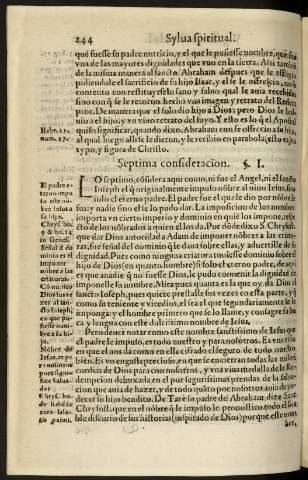 244 Sylua spiritual.
què fuesse su padre nutricio, y el que le pusesse nombre, que
vna de las mayores dignidades que vuo en la tierra. Assi
de la misma manera al sancto Abraham despues que se affligio,
pidiendole el sacrificio de su hijo Isaac, y el se le offrescio, no se
contento con restituyrselo sano y saluo qual le auia recebido,
sino con q̃ se le retorno hecho vna imagen y retrato del
ptor. De manera que el solo dio hijo a Dios: pero Dios le bol-
uio a el hijo, y vn viuo retrato del suyo. Y esto es lo q̃ el Apostol
quiso significar, quando dixo. Abraham con se offrecio a su hijo,
al qual luego alli se le dieron, y le recibio en parabola, esto es, en
typo, y figura de Christo.
Hebr. 11.
Septima consideracion. §. I.
LO septimo, cõsidera aqui como, ni fue el Angel, ni el sancto
Ioseph el q̃ originalmente impuso nõbre al nino Iesus, sino
solo el eterno padre. El padre fue el que le dio por nõbre Ie-
sus: y nadie sino el se lo pudo dar. La imposicion de los nombres
importa vn cierto imperio y dominio en quiẽ los impone, respe-
cto de los nõbrados a quien ellos da. Por dõde dixo S. Chrysost.
que le dio autoridad Dios a Adam de imponer nõbre a las criatu-
ras, fue señal del dominio q̃ le daua sobre ellas, y aduertille de su
dignidad. Pues como ninguna criatura tuuiesse dominio sobre el
hijo de Dios (en quanto hombre) sino el eterno padre, de aqui
es que a nadie q̃ no fuesse Dios, le pudo conuenir la dignidad de
imponelle su nombre. Mira pues quanta es la que oy da Dios al
sancto Ioseph, pues quiere prestalle sus vezes en esta parte, y q̃
como su teniente y vicedios, el sea el que segundariamente se le
imponga y el hombre primero que se lo llame, y consagre su bo-
ca y lengua con este dulcissimo nombre de Iesus,
Pero deues notar como este nombre sanctissimo de Iesus que
el padre le impuso, es todo nuestro y para nosotros. Es vn cris-
en que el nos da como en lla cifrado el seguro de todo nuestro
bien. Es vn en que se encierran todas las miseri-
cordias de Dios para con nosotros, y vna viua medalla de la Re-
dempcion debuxada en el por segurissimas prendas de la salua-
cion que auia de hazer, y de todo quanto por nosotros auia de pa-
decer su hijo bendito. De Tarè su padre del Abraham dize Sant
Chrysost. que en el nõbre q̃ le impuso le pronostico todo el
ble discurso de sus historias (inspirado de Dios) por que este
El padre e-
terno impu
so este nõ-
bre Iesus
a su hijo.
Chrys. ho.
in Genes.
Señal d do
minio es el
imponer
nõbre a las
criaturas.
Como hõro
Dios a S.
Ioseph, en
que pu-
siesse nom-
bre a su hi-
jo.
Nõbre de
Iesus,
Chrys. ho.